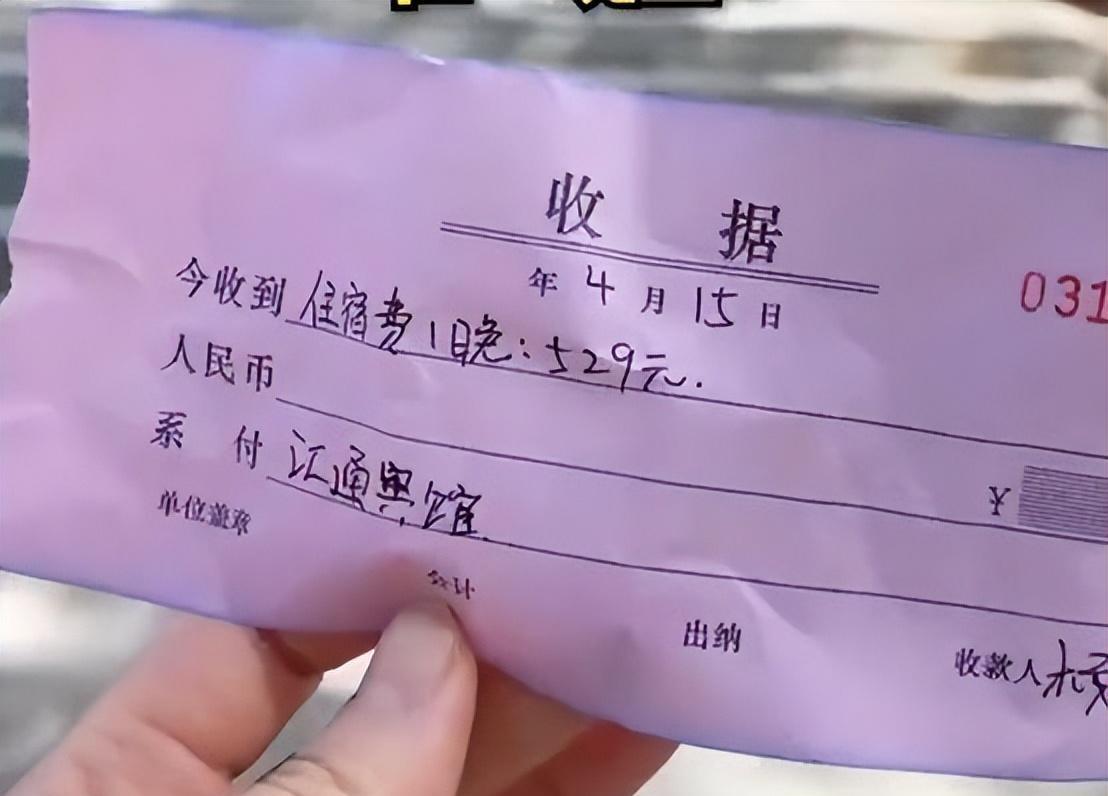 收 据
年 4 月 15 日
031
今收到 住宿费1晚:529元.
人民币
¥
系 付 汇通宾馆
单位盖章
会计
出纳
收款人